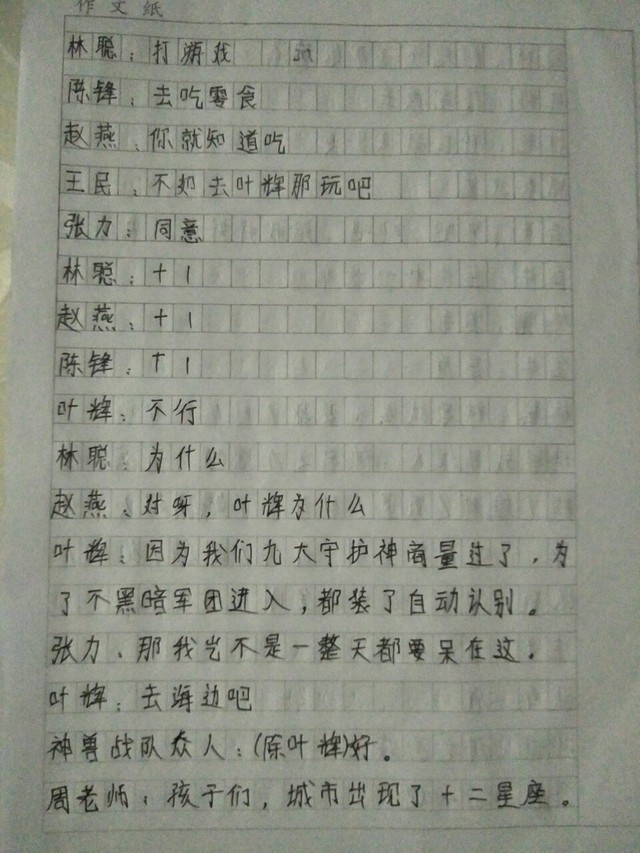 作文纸
林聪：打游戏
陈锋：去吃零食
赵燕：你就知道吃
王民：不如去叶辉那玩吧
张力：同意
林聪：+1
赵燕：+1
陈锋：+1
叶辉：不行
林聪：为什么
赵燕：对呀，叶辉为什么
叶辉：因为我们九大守护神商量过了，为
了不黑暗军团进入，都装了自动认别。
张力：那我岂不是一整天都要呆在这。
叶辉：去海边吧
神兽战队众人：(除叶辉)好。
周老师：孩子们，城市出现了十二星座。